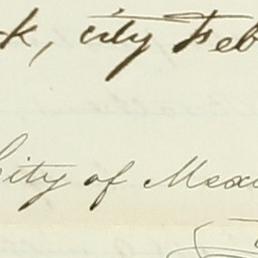 k, city Feb
City of Mexi